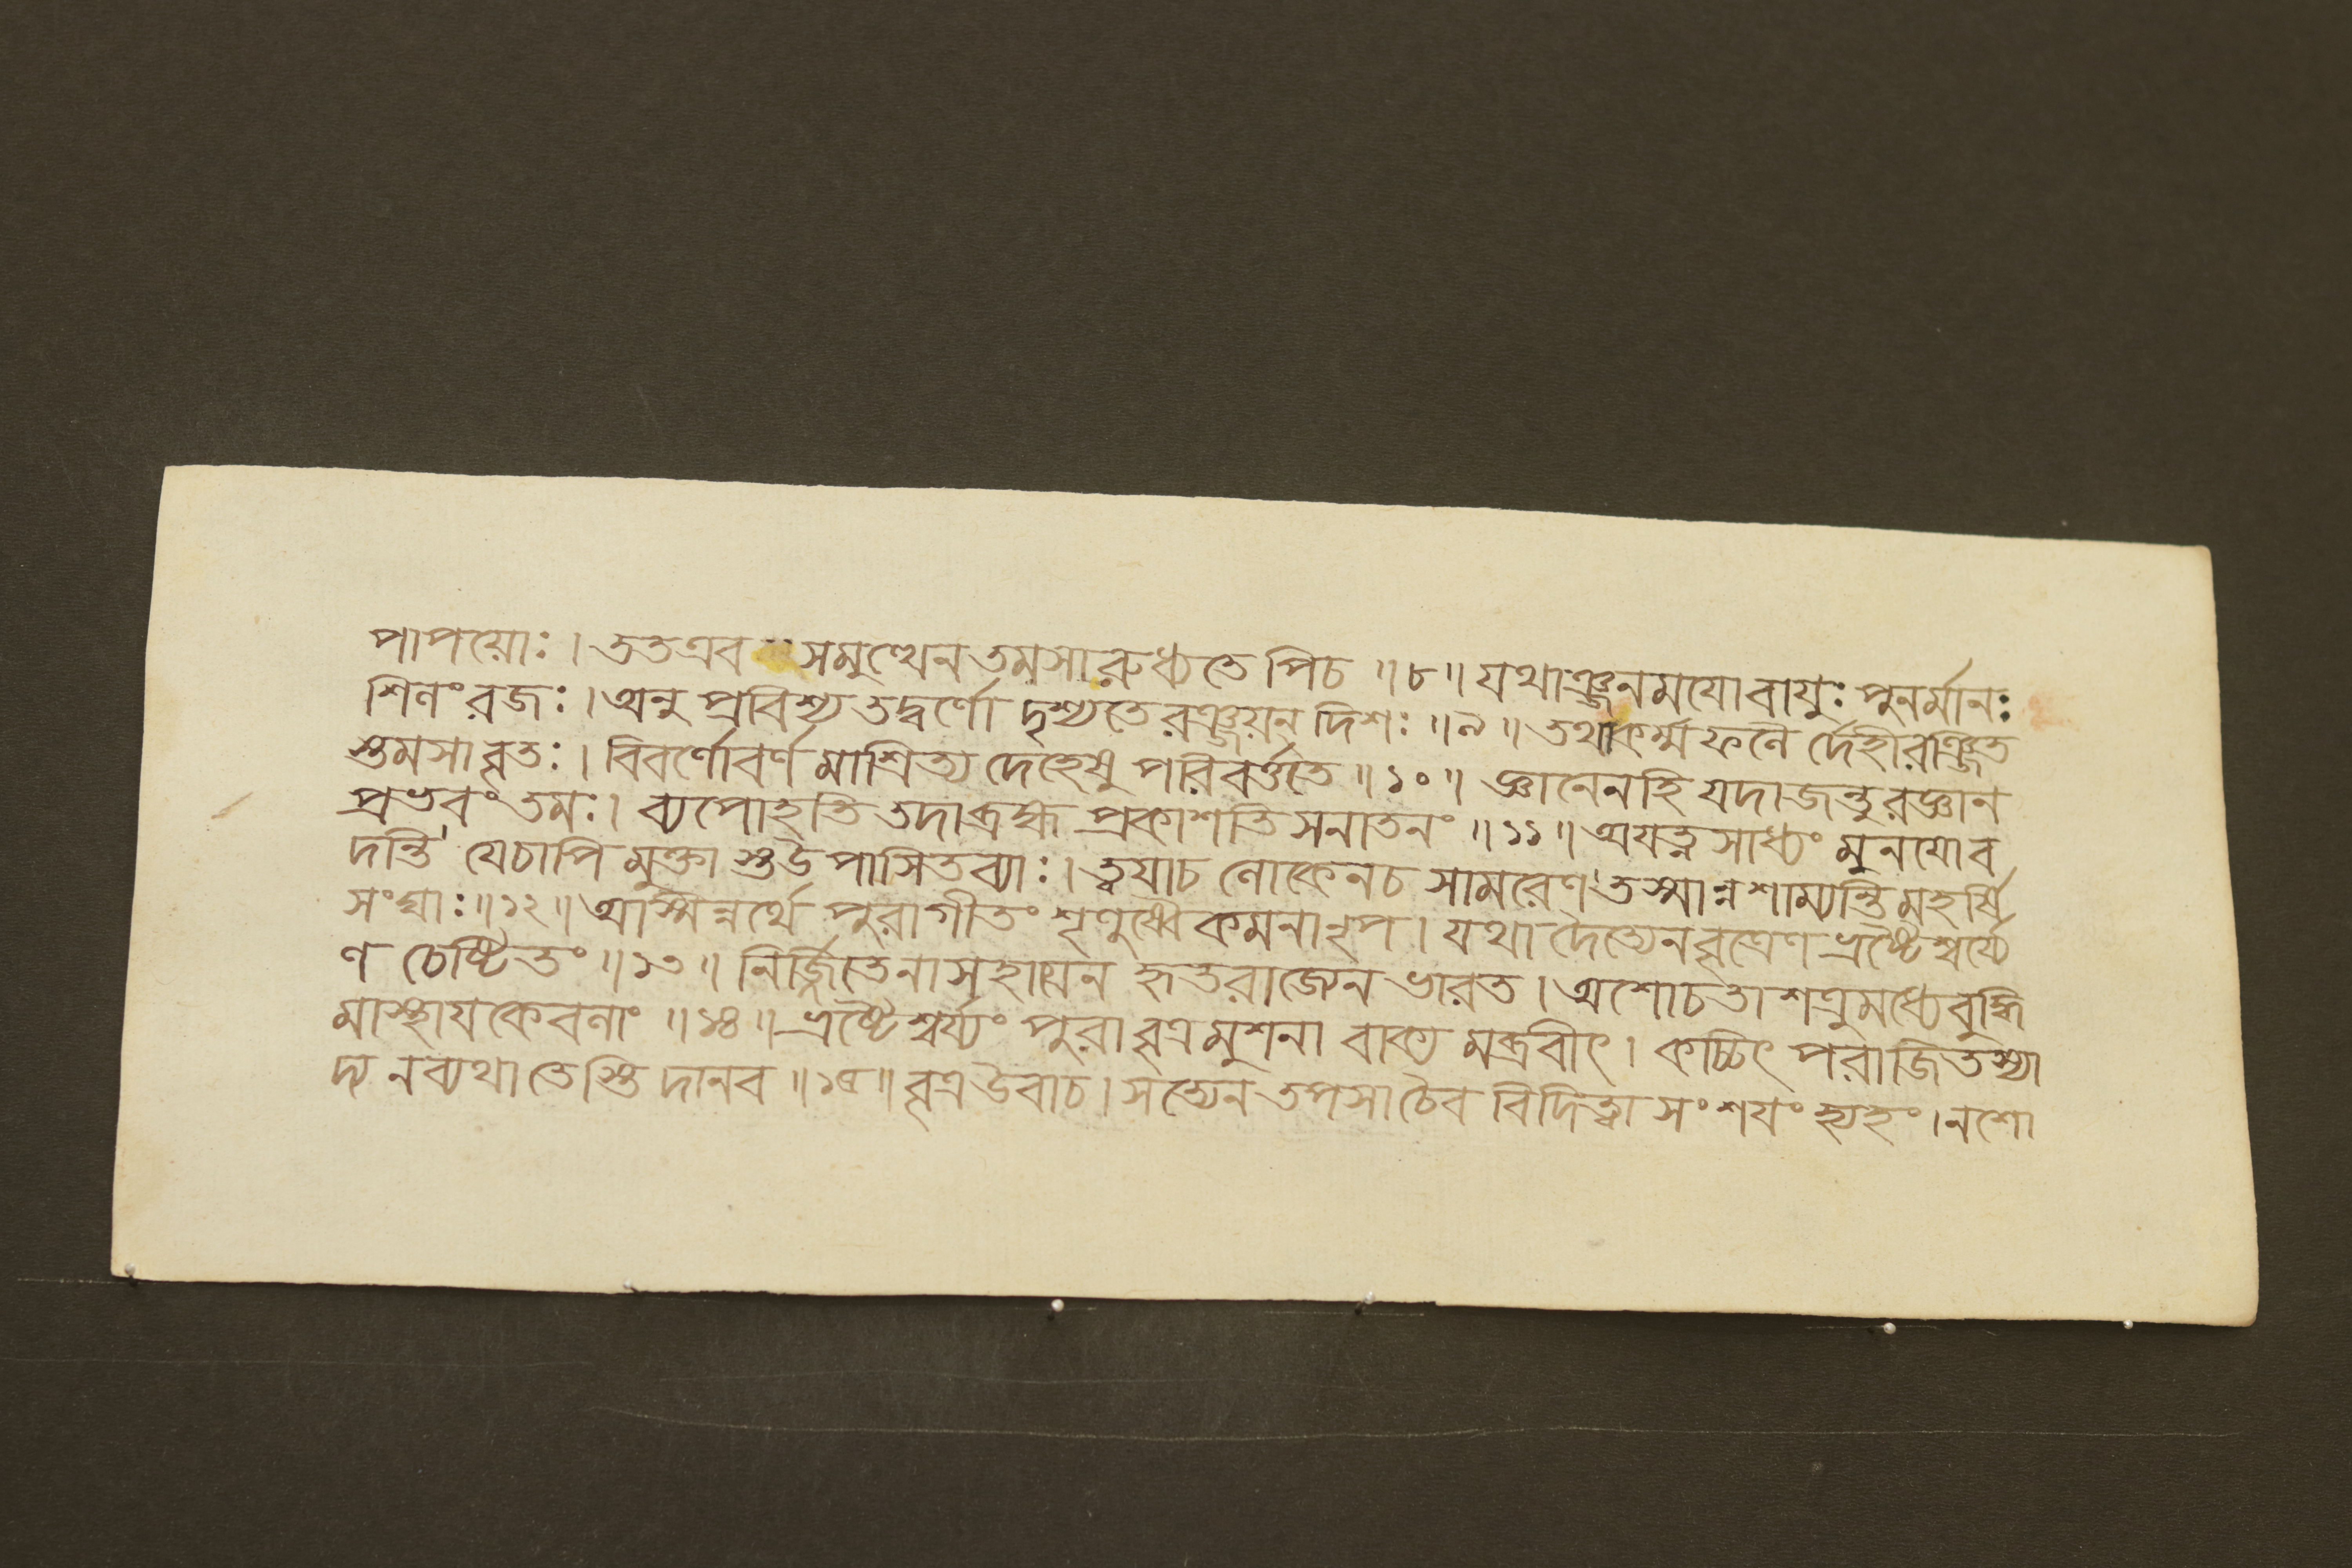 পাপয়োঃ। তত এব সমুত্থেন তমসা রুধ্যতে পিচ ॥৮॥ যথাঞ্জনময়ো বায়ুঃ পুনর্মানঃ
শিলং রজঃ। অনু প্রবিশ্য তদ্বর্ণো দৃশ্যতে রঞ্জয়ন্ দিশঃ ॥৯॥ তথা কর্ম্ম ফলৈ র্দেহী রঞ্জিত
স্তমসাবৃতঃ। বিবর্ণো বর্ণ মাশ্রিত্য দেহেষু পরিবর্ত্ততে ॥১০॥ জ্ঞানেন হি যদা জন্তুরজ্ঞান
প্রভবং তমঃ। ব্যপোহতি তদা ব্রহ্ম প্রকাশতি সনাতনং ॥১১॥ অযত্ন সাধ্যং মুনয়ো ব
দন্তি যে চাপি মুক্তা স্ত উপাসিতব্যাঃ। ত্বযাচ লোকেনচ সামরেণ তস্মান্ন শাম্যন্তি মহর্ষি
সংঘাঃ ॥১২॥ অস্মিন্নর্থে পুরাগীতং শৃণুষ্বৈকমনা নৃপ। যথা দৈত্যেন বৃত্রেণ ভ্রষ্টৈশ্বর্য্যে
ণ চেষ্টিতং ॥১৩॥ নির্জ্জিতেনাসহায়েন হৃতরাজ্যেন ভারত। অশোচতা শত্রুমধ্যে বুদ্ধি
মাস্থায কেবলাং ॥১৪॥ ভ্রষ্টৈশ্বর্য্যং পুরা বৃত্রমুশনা বাক্য মব্রবীৎ। কচ্চিৎ পরাজিতস্যা
দ্য ন ব্যথা তেস্তি দানব ॥১৫॥ বৃত্র উবাচ। সত্যেন তপসা চৈব বিদিত্বা সংশযং হ্যহং। ন শো